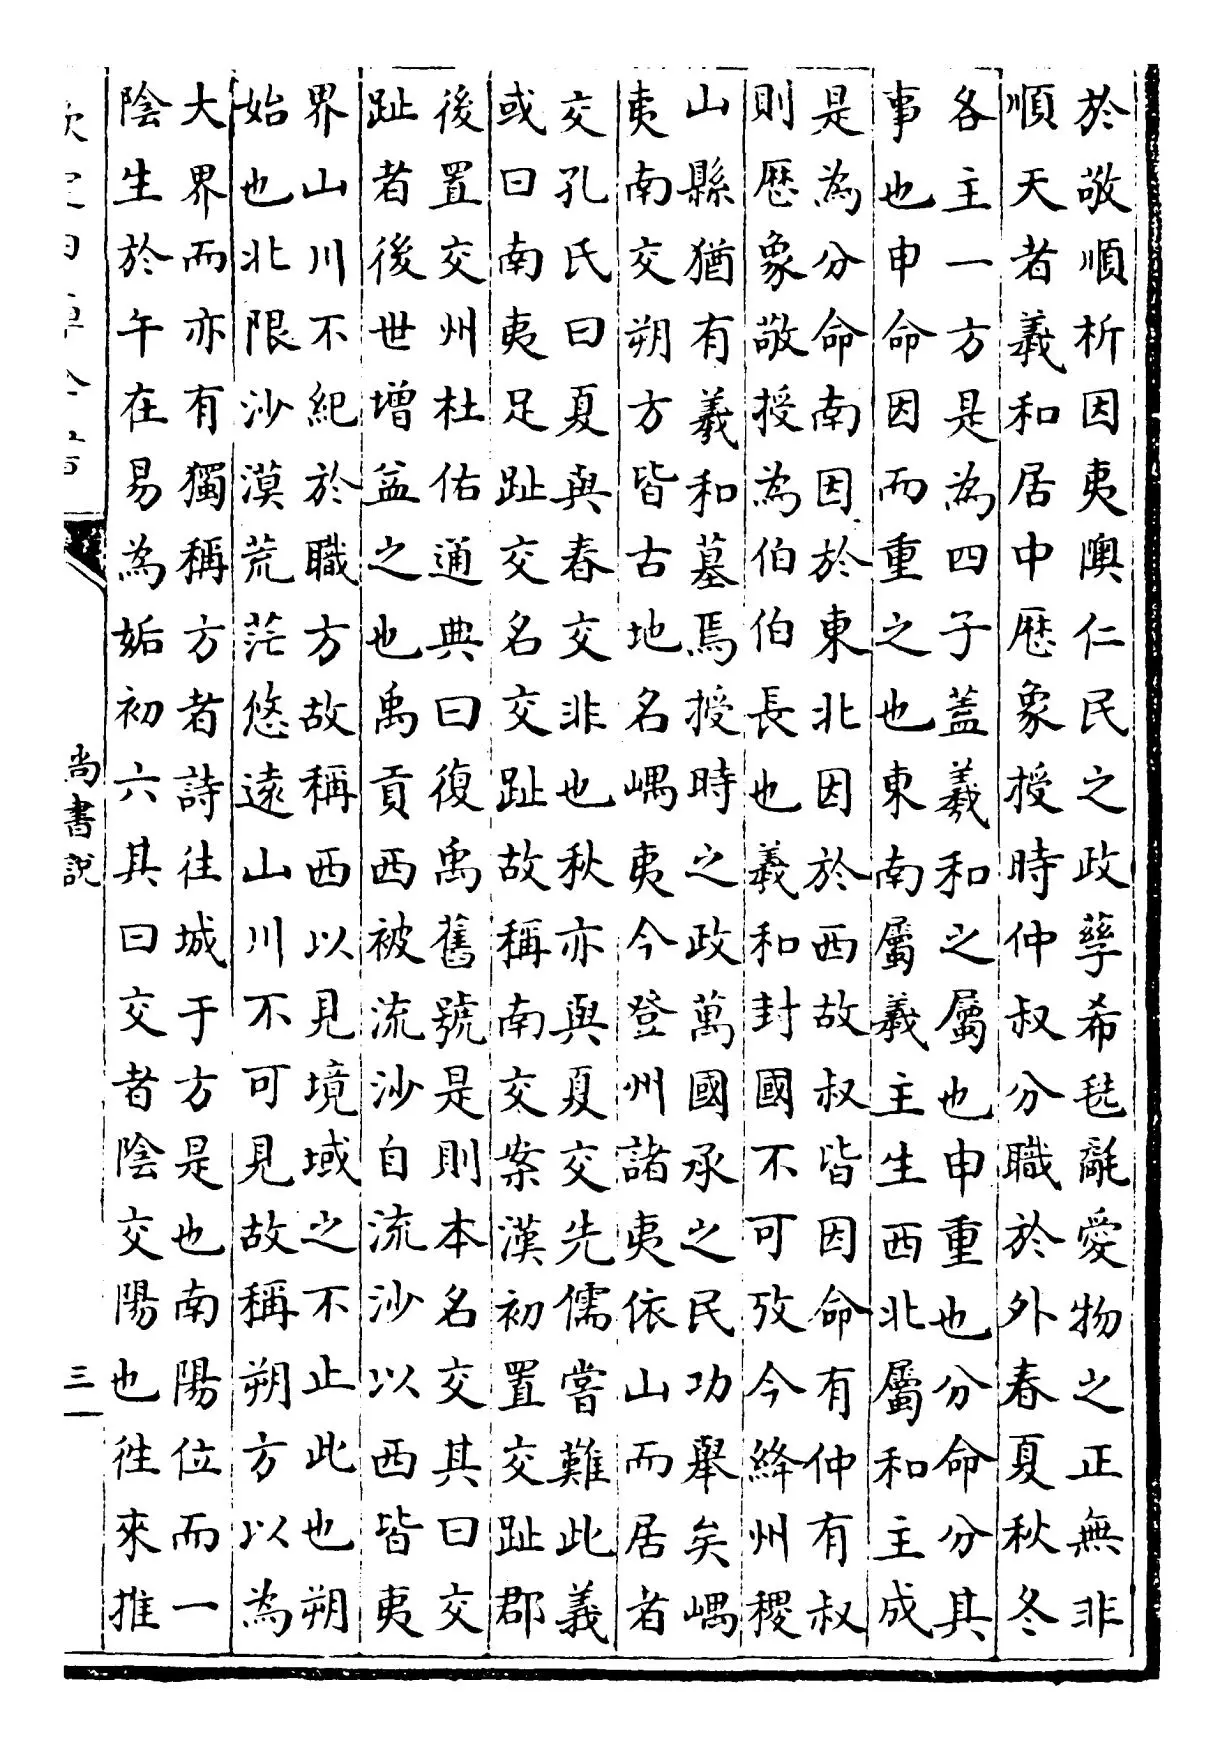 於敬順析因夷隩仁民之政孳希毨氄愛物之正無非
順天者羲和居中厯象授時仲叔分職於外春夏秋冬
各主一方是為四子蓋羲和之屬也申重也分命分其
事也申命因而重之也東南屬羲主生西北屬和主成
是為分命南因於東北因於西故叔皆因命有仲有叔
則厯象敬授為伯伯長也羲和封國不可攷今絳州稷
山縣猶有羲和墓焉授時之政萬國承之民功舉矣嵎
夷南交朔方皆古地名嵎夷今登州諸夷依山而居者
交孔氏曰夏與春交非也秋亦與夏交先儒嘗難此義
或曰南夷足趾交名交趾故稱南交案漢初置交趾郡
後置交州杜佑通典曰復禹舊號是則本名交其曰交
趾者後世增益之也禹貢西被流沙自流沙以西皆夷
界山川不紀於職方故稱西以見境域之不止此也朔
始也北限沙漠荒茫悠遠山川不可見故稱朔方以為
大界而亦有獨稱方者詩往城于方是也南陽位而一
陰生於午在易為姤初六其曰交者陰交陽也往來推
欽定四庫全書
尚書說
三